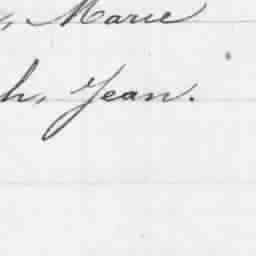 , Marie
h, Jean.